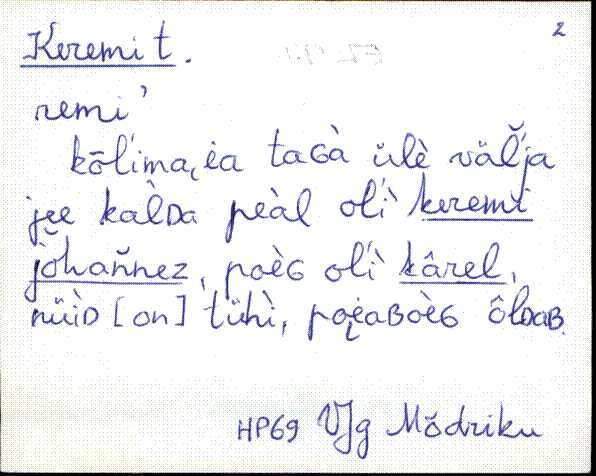 2
Keremi t.
remi'
kōĺima, ėa taGà ŭlè vä̆ĺja
jee kaL̀Da peàl oĺì keremi
jŏhaňnez, poèG oĺì kârel,
nüìD [on] tühì, poėaBoèG ôlDaB.
HP69 VJg Mõdriku